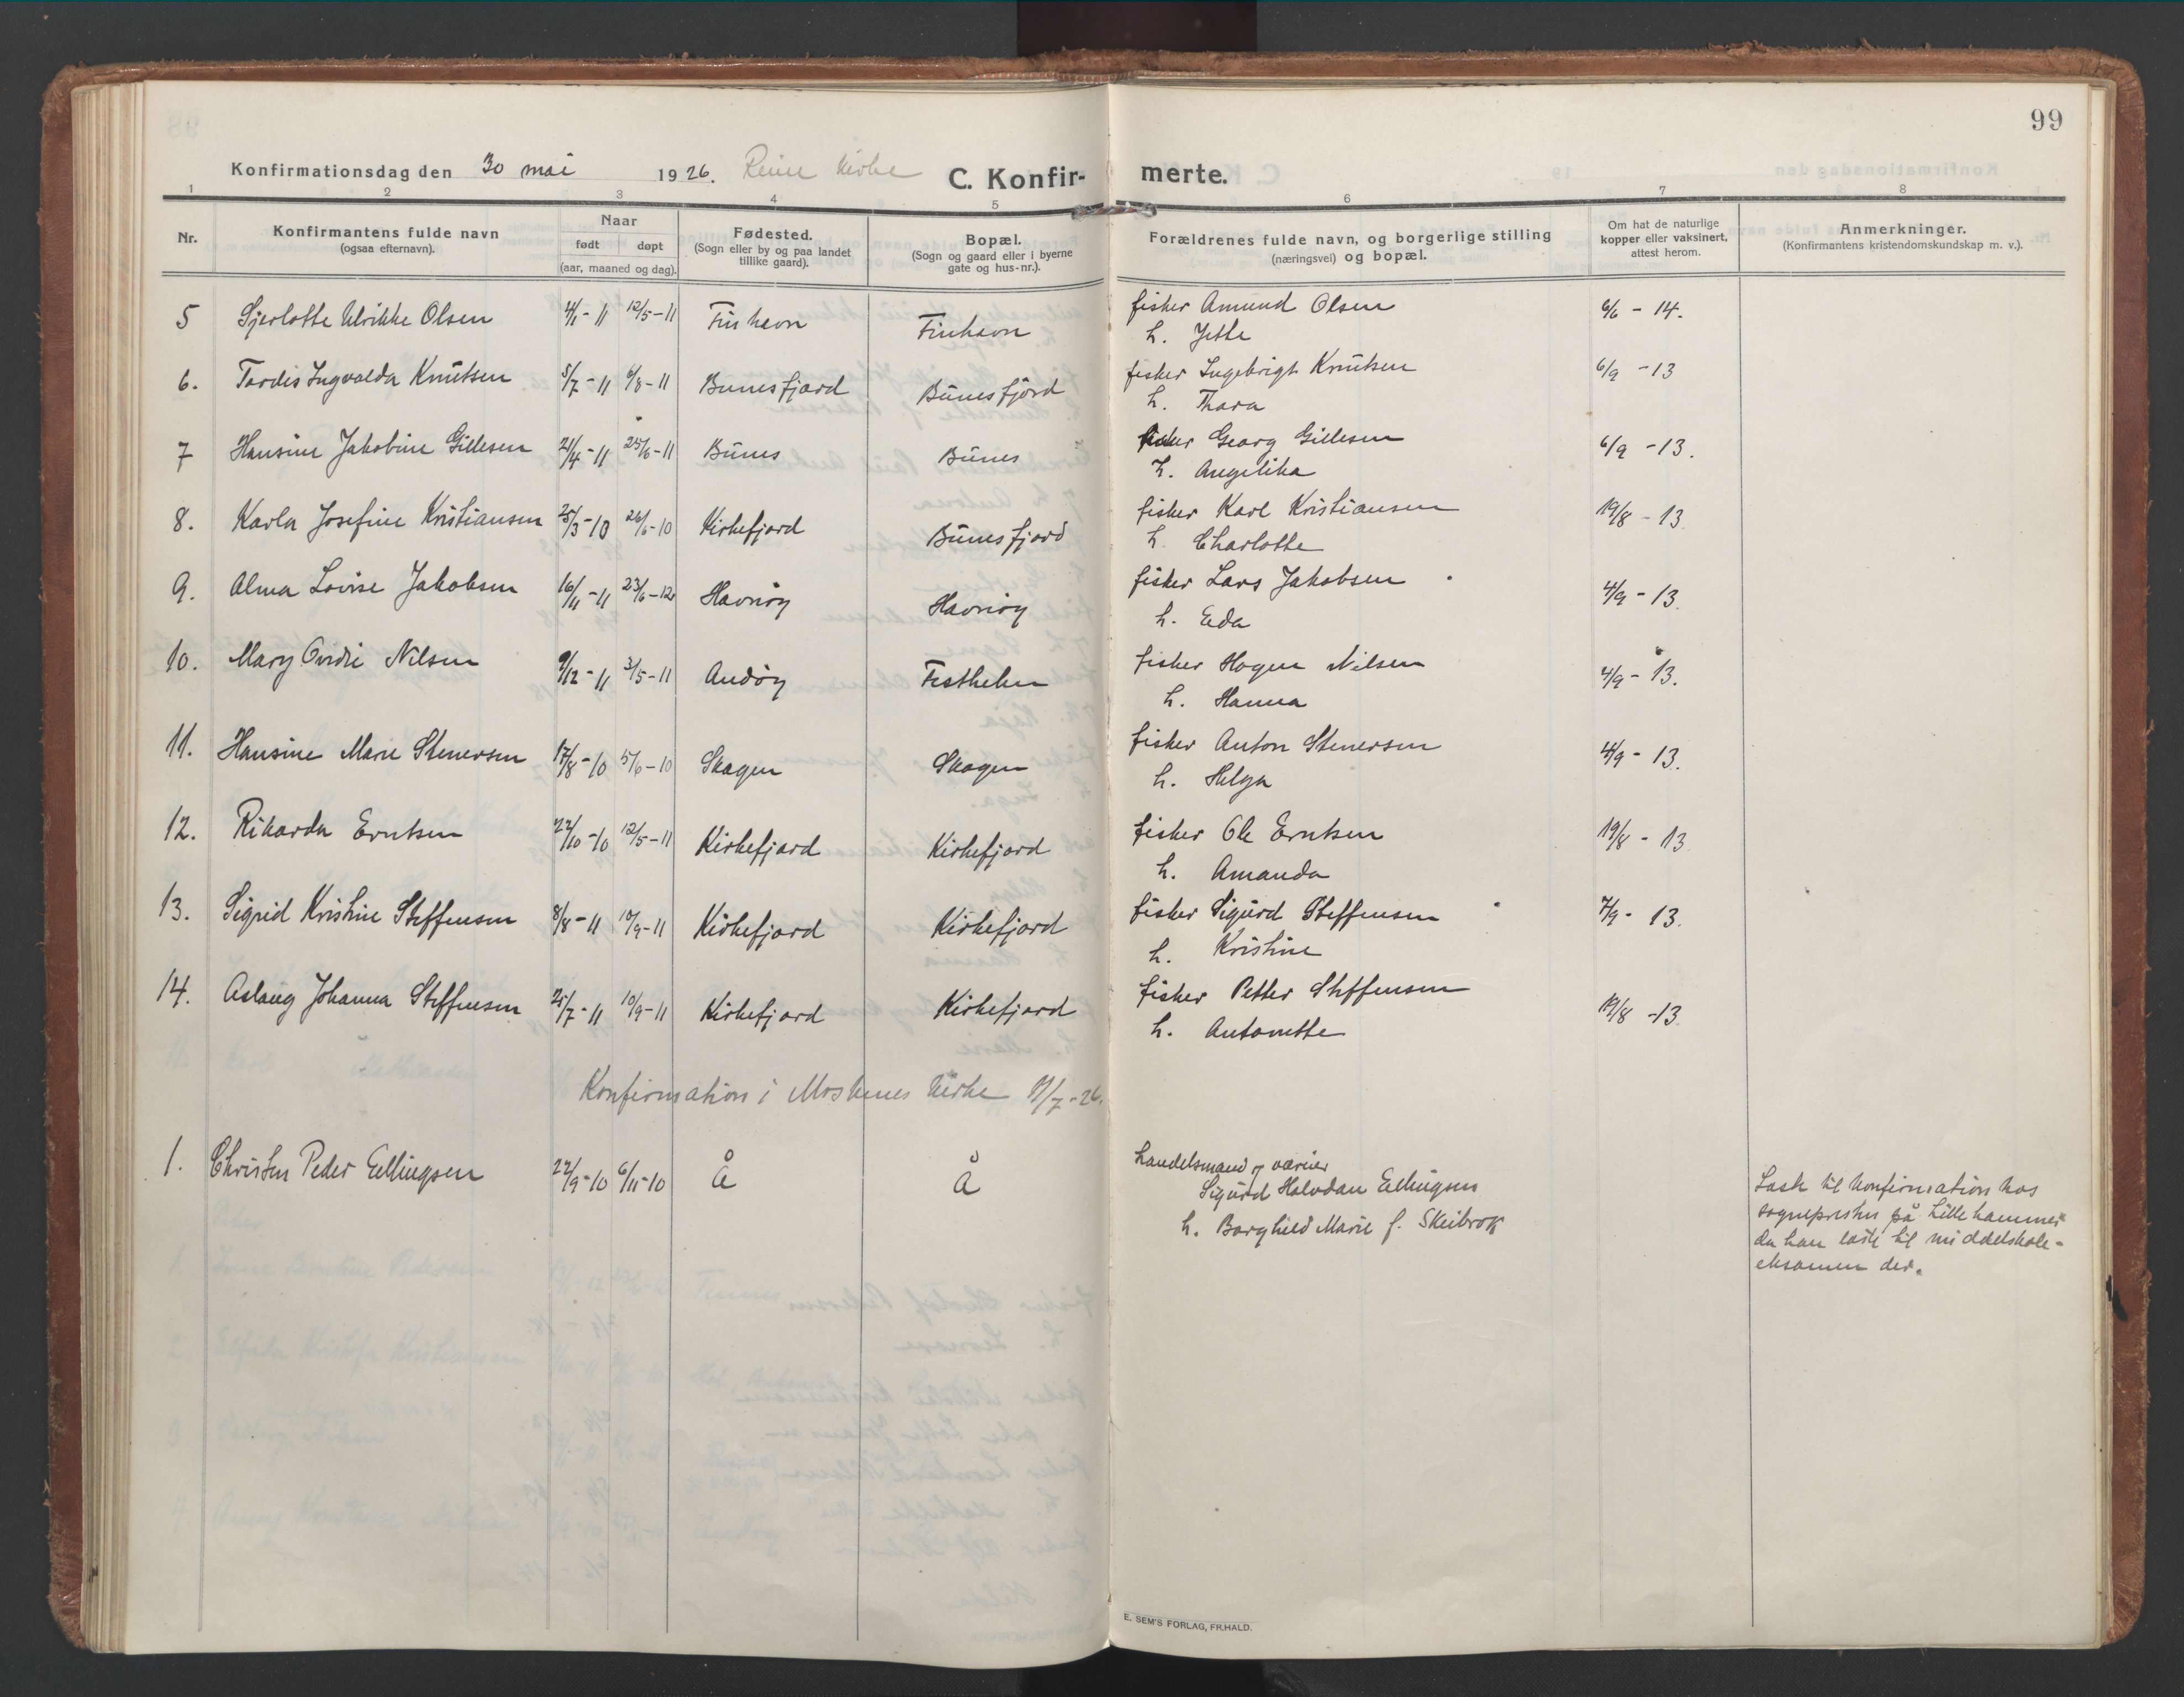 99
Konfirmationsdag den 30 mai 1926. Reine kirke C. Konfir- merte.
1 2 3 4 5 6 7 8
Nr.
Konfirmantens fulde navn
(ogsaa efternavn).
Naar
født døpt
(aar, maaned og dag).
Fødested.
(Sogn eller by og paa landet
tillike gaard).
Bopæl.
(Sogn og gaard eller i byerne
gate og hus-nr.).
Forældrenes fulde navn, og borgerlige stilling
(næringsvei) og bopæl.
Om hat de naturlige
kopper eller vaksinert,
attest herom.
Anmerkninger.
(Konfirmantens kristendomskundskap m. v.).
5 Sjerlotte Ulrikke Olsen 4/1-11 12/5-11 Finhavn Finhavn fisker Amund Olsen 6/6 - 14.
h. Jette
6. Tordis Ingvalda Knutsen 5/7-11 6/8-11 Bunesfjord Bunesfjord fisker Ingebrigt Knutsen 6/9 - 13
h. Thora
7 Hansine Jakobine Gillesen 21/4-11 25/6-11 Bunes Bunes fisker Georg Gillesen 6/9 - 13.
h. Angelika
8. Karla Josefine Kristiansen 25/3-10 26/6-10 Kirkefjord Bunesfjord fisker Karl Kristiansen 19/8 - 13
h. Charlotte
9. Alma Lovise Jakobsen 16/11-11 23/6-12 Havnøy Havnøy fisker Lars Jakobsen 4/9 - 13.
h. Eda
10. Mary Ovidie Nilsen 9/12-11 3/5-11 Andøy Festhelen fisker Hagen Nilsen 4/9 - 13.
h. Hanna
11. Hansine Marie Stenersen 17/8-10 5/6-10 Skagen Skagen fisker Anton Stenersen 4/9 - 13.
h. Helga
12. Rikarda Erntsen 22/10-10 12/5-11 Kirkefjord Kirkefjord fisker Ole Erntsen 19/8 - 13
h. Amanda
13. Sigrid Kristine Steffensen 8/8-11 10/9-11 Kirkefjord Kirkefjord fisker Sigurd Steffensen 7/9 - 13.
h. Kristine
14. Aslaug Johanna Steffensen 25/7-11 10/9-11 Kirkefjord Kirkefjord fisker Petter Steffensen 19/8 - 13.
h. Antonette
Konfirmation i Moskenes kirke 11/7-26.
1. Christen Peder Ellingsen 22/9-10 6/11-10 Å Å handelsmand og væreier
Sigurd Halvdan Ellingsen
h. Borghild Marie f. Skeibrok
Læste til konfirmation hos
sogneprsten på Lillehammer
da han læste til middelskole-
eksamen der.
E. SEM'S FORLAG, FR.HALD.